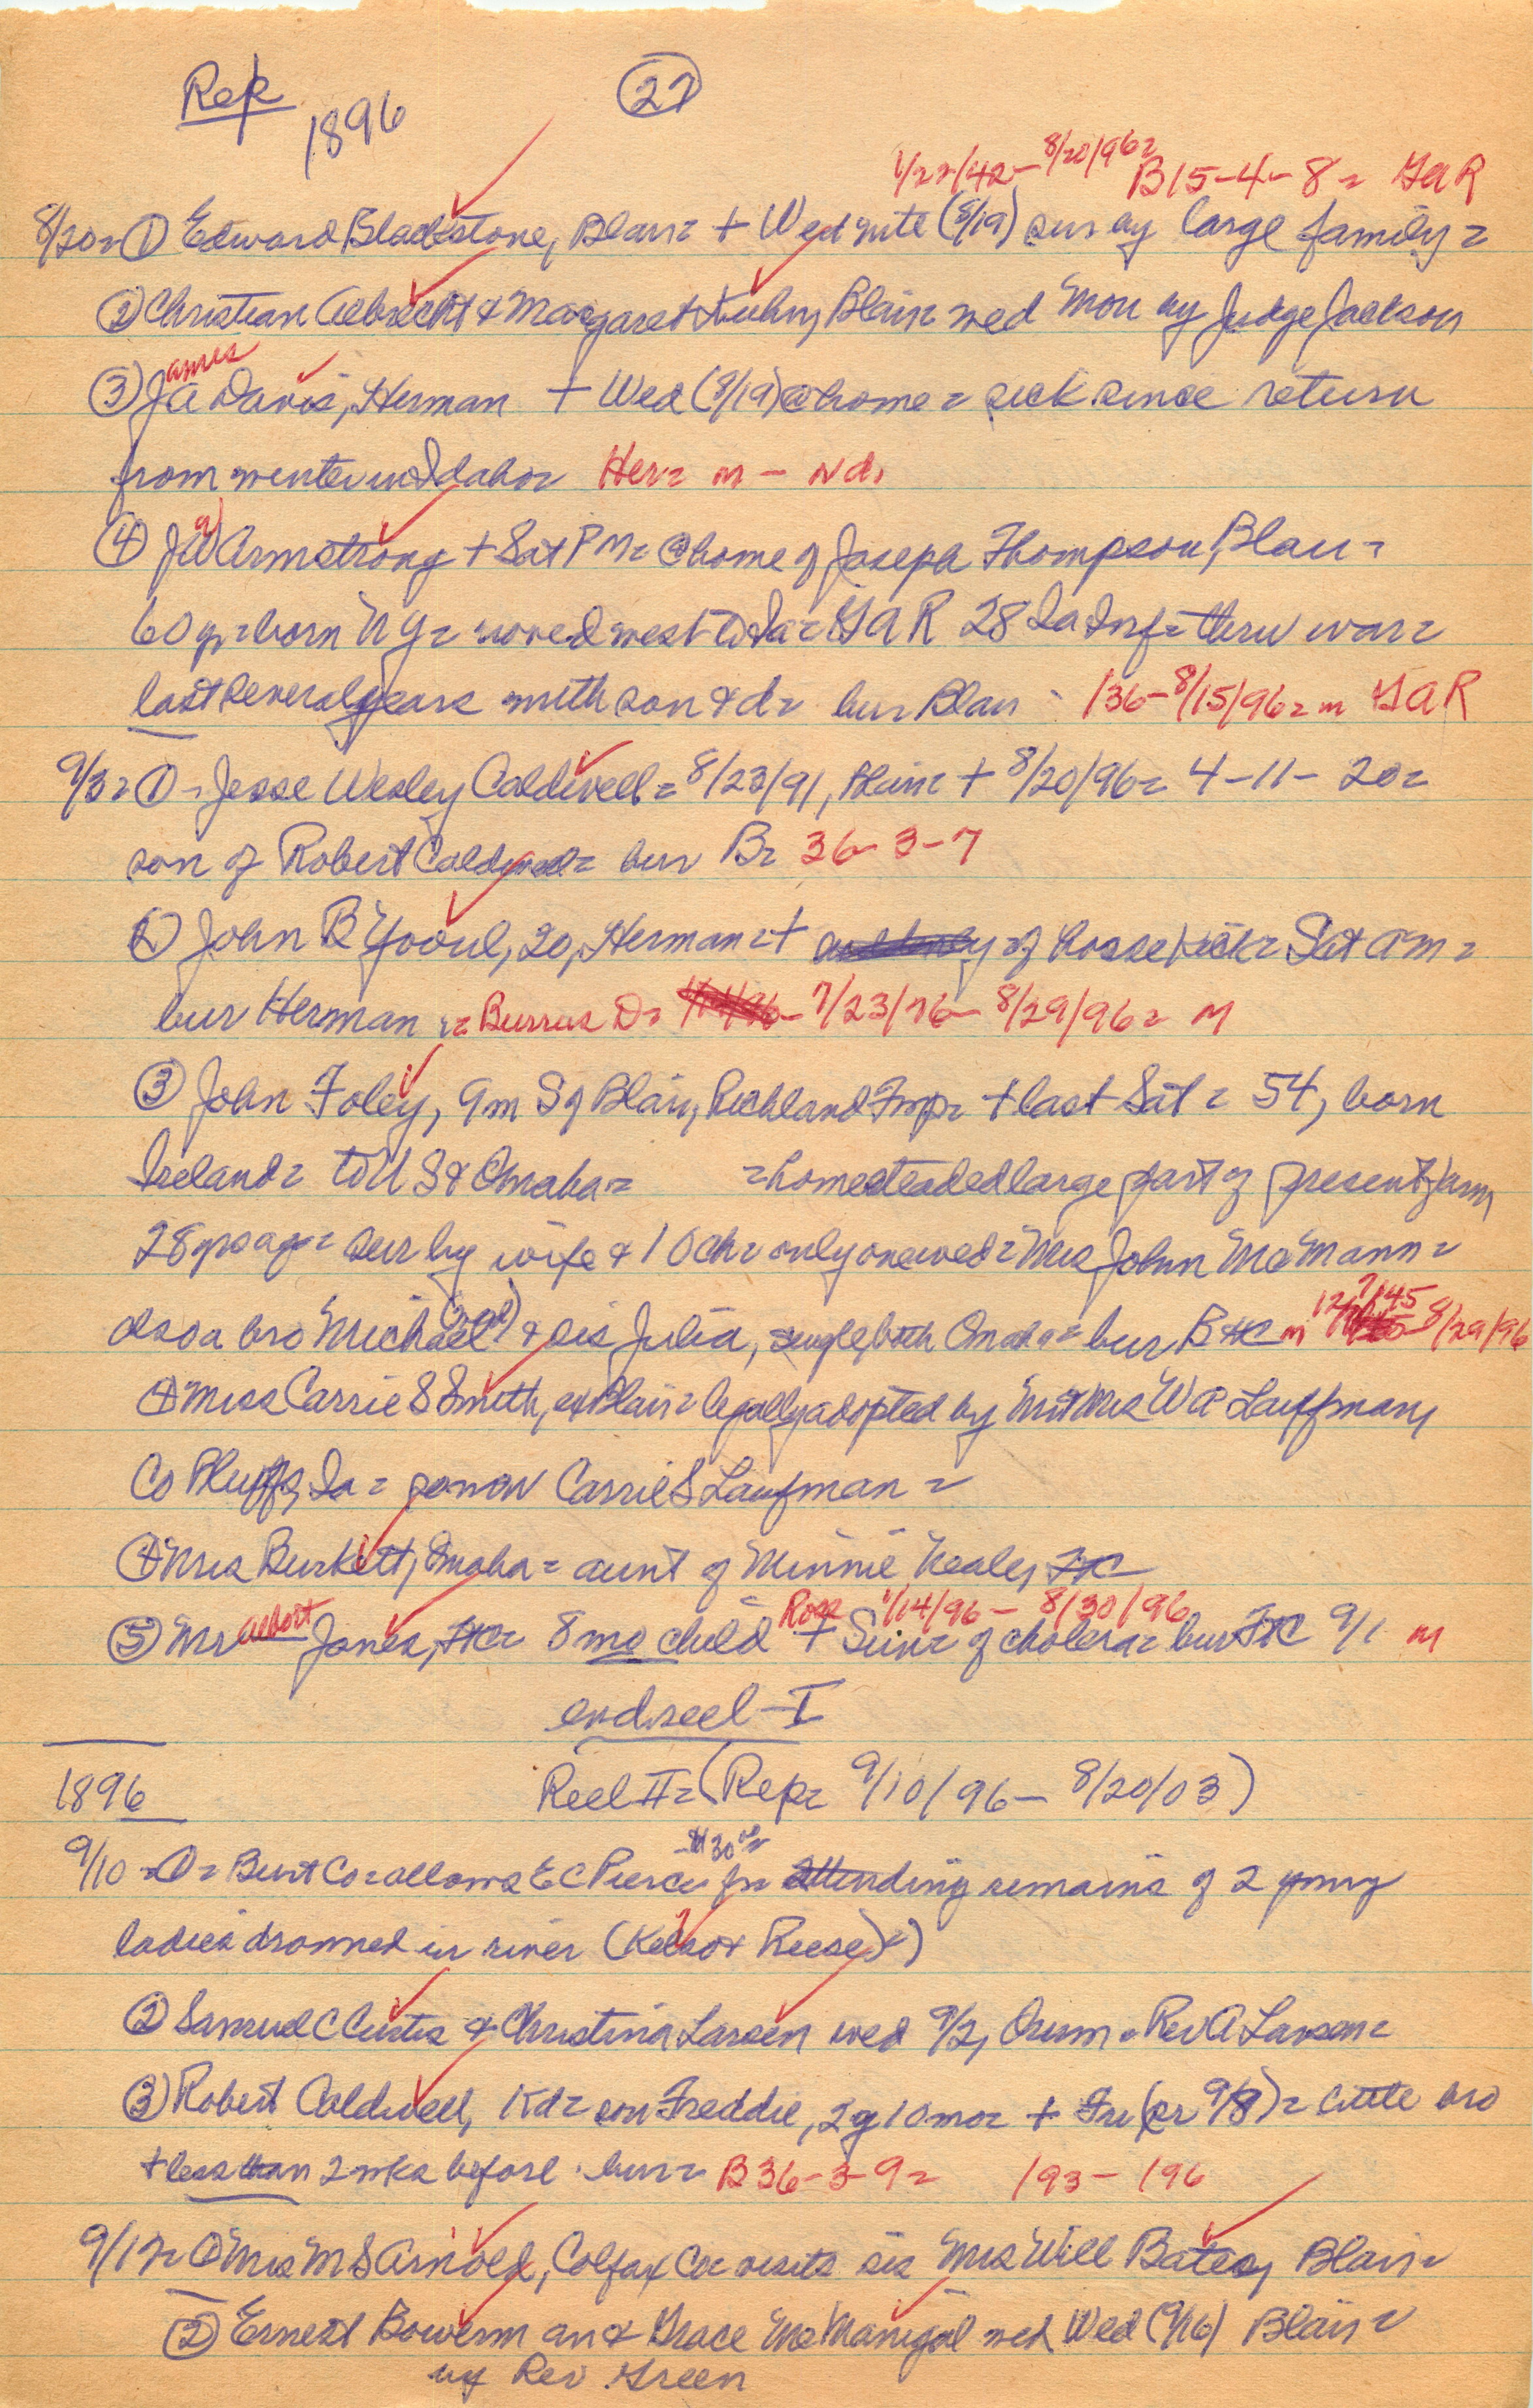 Rep 1896 27
1/22/42- 8/20/96= B15-4-8= GAR
8/20= ① Edward Blackstone, Blair= + Wed nite (8/19) sur by large family=
② Christian Albrecht & Margaret Kuhn, Blair= wed Mon by Judge Jackson
ames
③ JA Davis, Herman + Wed (8/19) @ home= sick since return
from winter in Idaho= Her= m - nd.
④ JW Armstrong + Sat PM= @ home of Joseph Thompson, Blair=
60 yr= born NY= moved west to Ia= GAR 28 Ia Inf= thru war=
last several years with son & d= bur Blair - /36- 8/15/96= m GAR
9/3= ①- Jesse Wesley Caldwell= 8/23/91, Blair= + 8/20/96= 4-11-20=
son of Robert Caldwell= bur B= 36-3-7
② John B Yovul, 20, Herman= + of horse kick= Sat am=
bur Herman = Burrus D= 7/23/76- 8/29/96= M
③ John Foley, 9m S of Blair, Richland Twp= + last Sat= 54, born
Ireland= to US & Omaha= =homesteaded large part of present farm
28 yrs ago= sur by wife & 10 ch= only one wed= Mrs John McMann=
also a bro Michael & sis Julia, single, both Omaha= bur B m 12/7/45 8/29/96
④ Miss Carrie S Smith, ex Blair= legally adopted by Mr & Mrs WA Lauffman,
Co Bluffs, Ia= so now Carrie S Laufman=
④ Mrs Burkett, Omaha= aunt of Minnie Neale, FtC
albert Ross 1/14/96- 8/30/96
⑤ Mr Jones, FtC= 8 mo child + Sun= of cholera= bur FtC 9/1 m
end reel-I
1896 Reel II= (Rep= 9/10/96- 8/20/03)
$30
9/10= ①= Burt Co= allows EC Pierce for attending remains of 2 young
ladies drowned in river (Kelso & Reese)
② Samuel C Curtis & Christina Larsen wed 9/2, Orum= Rev A Larsen=
③ Robert Caldwell, Kd= son Freddie, 2y 10mo= + Fri (or 9/8)= little bro
+ less than 2 wks before. bur= B36-3-9= /93- /96
9/17= ① Mrs MS Arnold, Colfax Co= visits sis Mrs Will Bates, Blair=
② Ernest Bowerman & Grace McManigal wed Wed (9/16) Blair=
by Rev Green